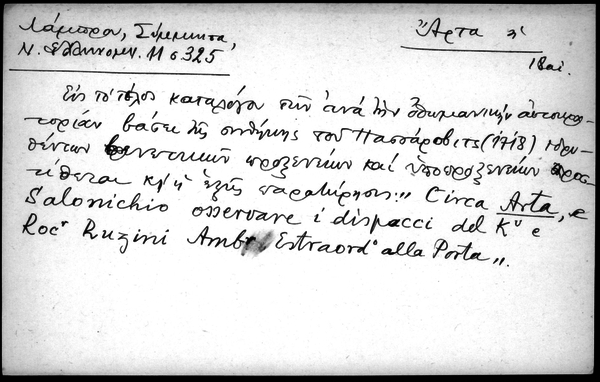 Λάμπρου, Σύμμικτα,
Ν. Ἑλληνομν. 11 σ 325
Ἄρτα
18 αἰ.
Εἰς τὸ τέλος καταλόγου τῶν ἀνὰ τὴν ὀθωμανικὴν αὐτοκρα-
τορίαν βάσει τῆς συνθήκης τοῦ Πασσάροβιτς (1718) ἱδρυ-
θέντων βενετικῶν προξενείων καὶ ὑποπροξενείων προσ-
τίθεται κ ἡ ἑξῆς παρατήρησις: „Circa Arta, e
Salonichio osservare i dispacci del Kʳ e
Rocʳ Ruzini Ambʳ Estraordº alla Porta„.